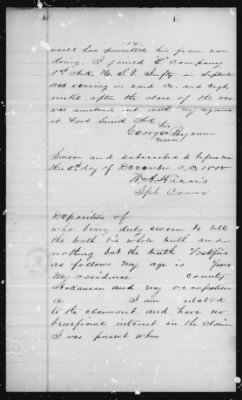 would have prevented him from so
doing. I joined E Company
in September
1863 serving in said Co. and Regt
until after the close of the war
was mustered out with my regiment
at Fort Smith Ark
his
George Bynum
mark
Sworn and subscribed to before me
this day of December A.D.
Harris
Spl Comr
Deposition of
who being duly sworn to tell
the truth the whole truth and
nothing but the truth Testifies
as follows my age is years
My residence county
Arkansas and my occupation
a I am not related
to the claimant and have no
beneficial interest in the claim
I was present when